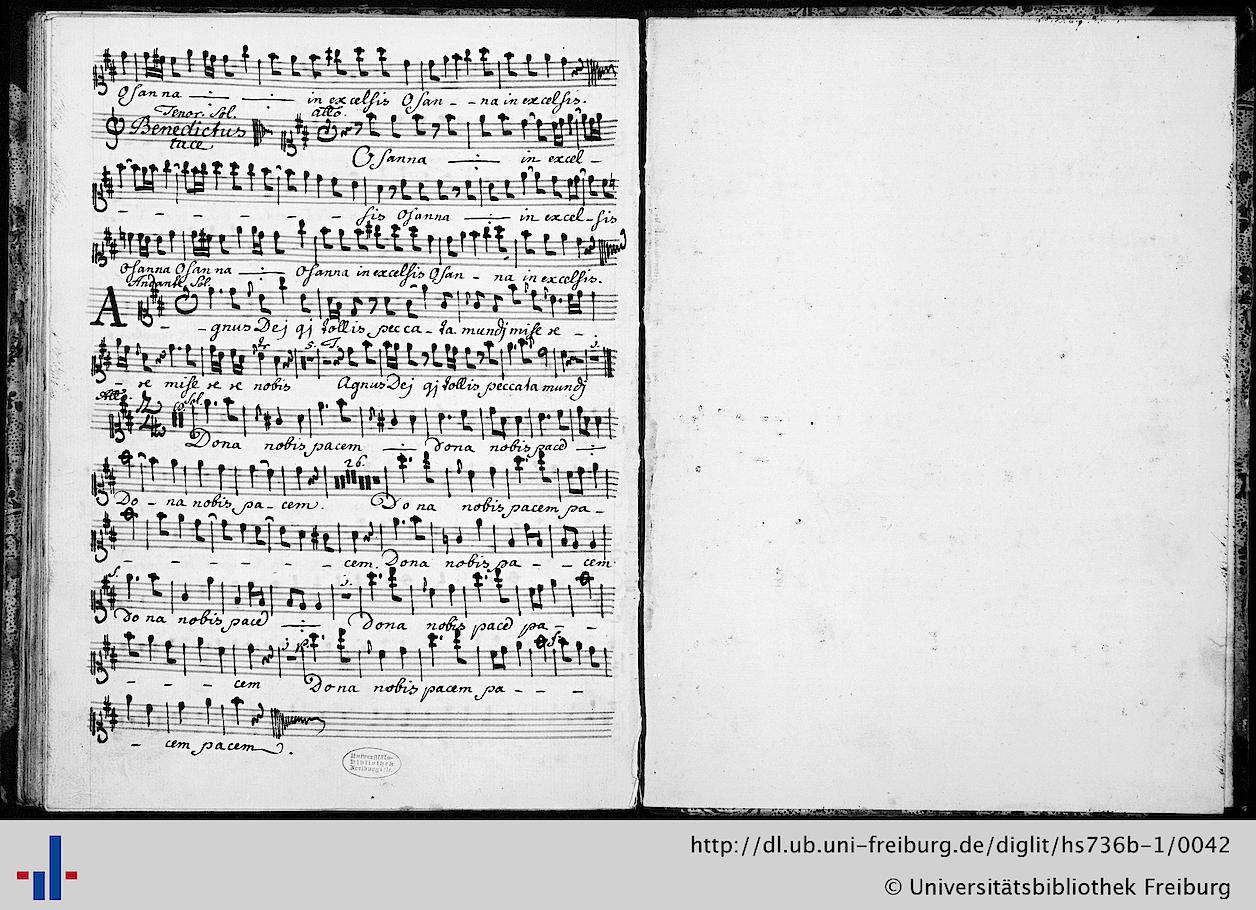 Osanna in excelsis Osan - - na in excelsis.
Tenor. Sol. allo.
Benedictus
tace
Osanna in excel -
- - - - - - sis Osanna in excel - sis
Osanna Osanna Osanna in excelsis Osan - na in excelsis.
Andante Sol.
A - - gnus Dej qj tollis pecca - ta mundj mise re -
tr 5. T. 3.
- re mise re re nobis Agnus Dej qj tollis peccata mundj
Allo Sol.
Dona nobis pacem dona nobis pace
26.
Do - na nobis pa - cem. Dona nobis pacem pa -
- - - - - - cem. Dona nobis pa - - cem
f.
Dona nobis pace Dona nobis pace pa - -
- - - cem Dona nobis pacem pa - - -
- cem pacem.
Universitäts-
Bibliothek
Freiburg i. Br.
http://dl.ub.uni-freiburg.de/diglit/hs736b-1/0042
© Universitätsbibliothek Freiburg